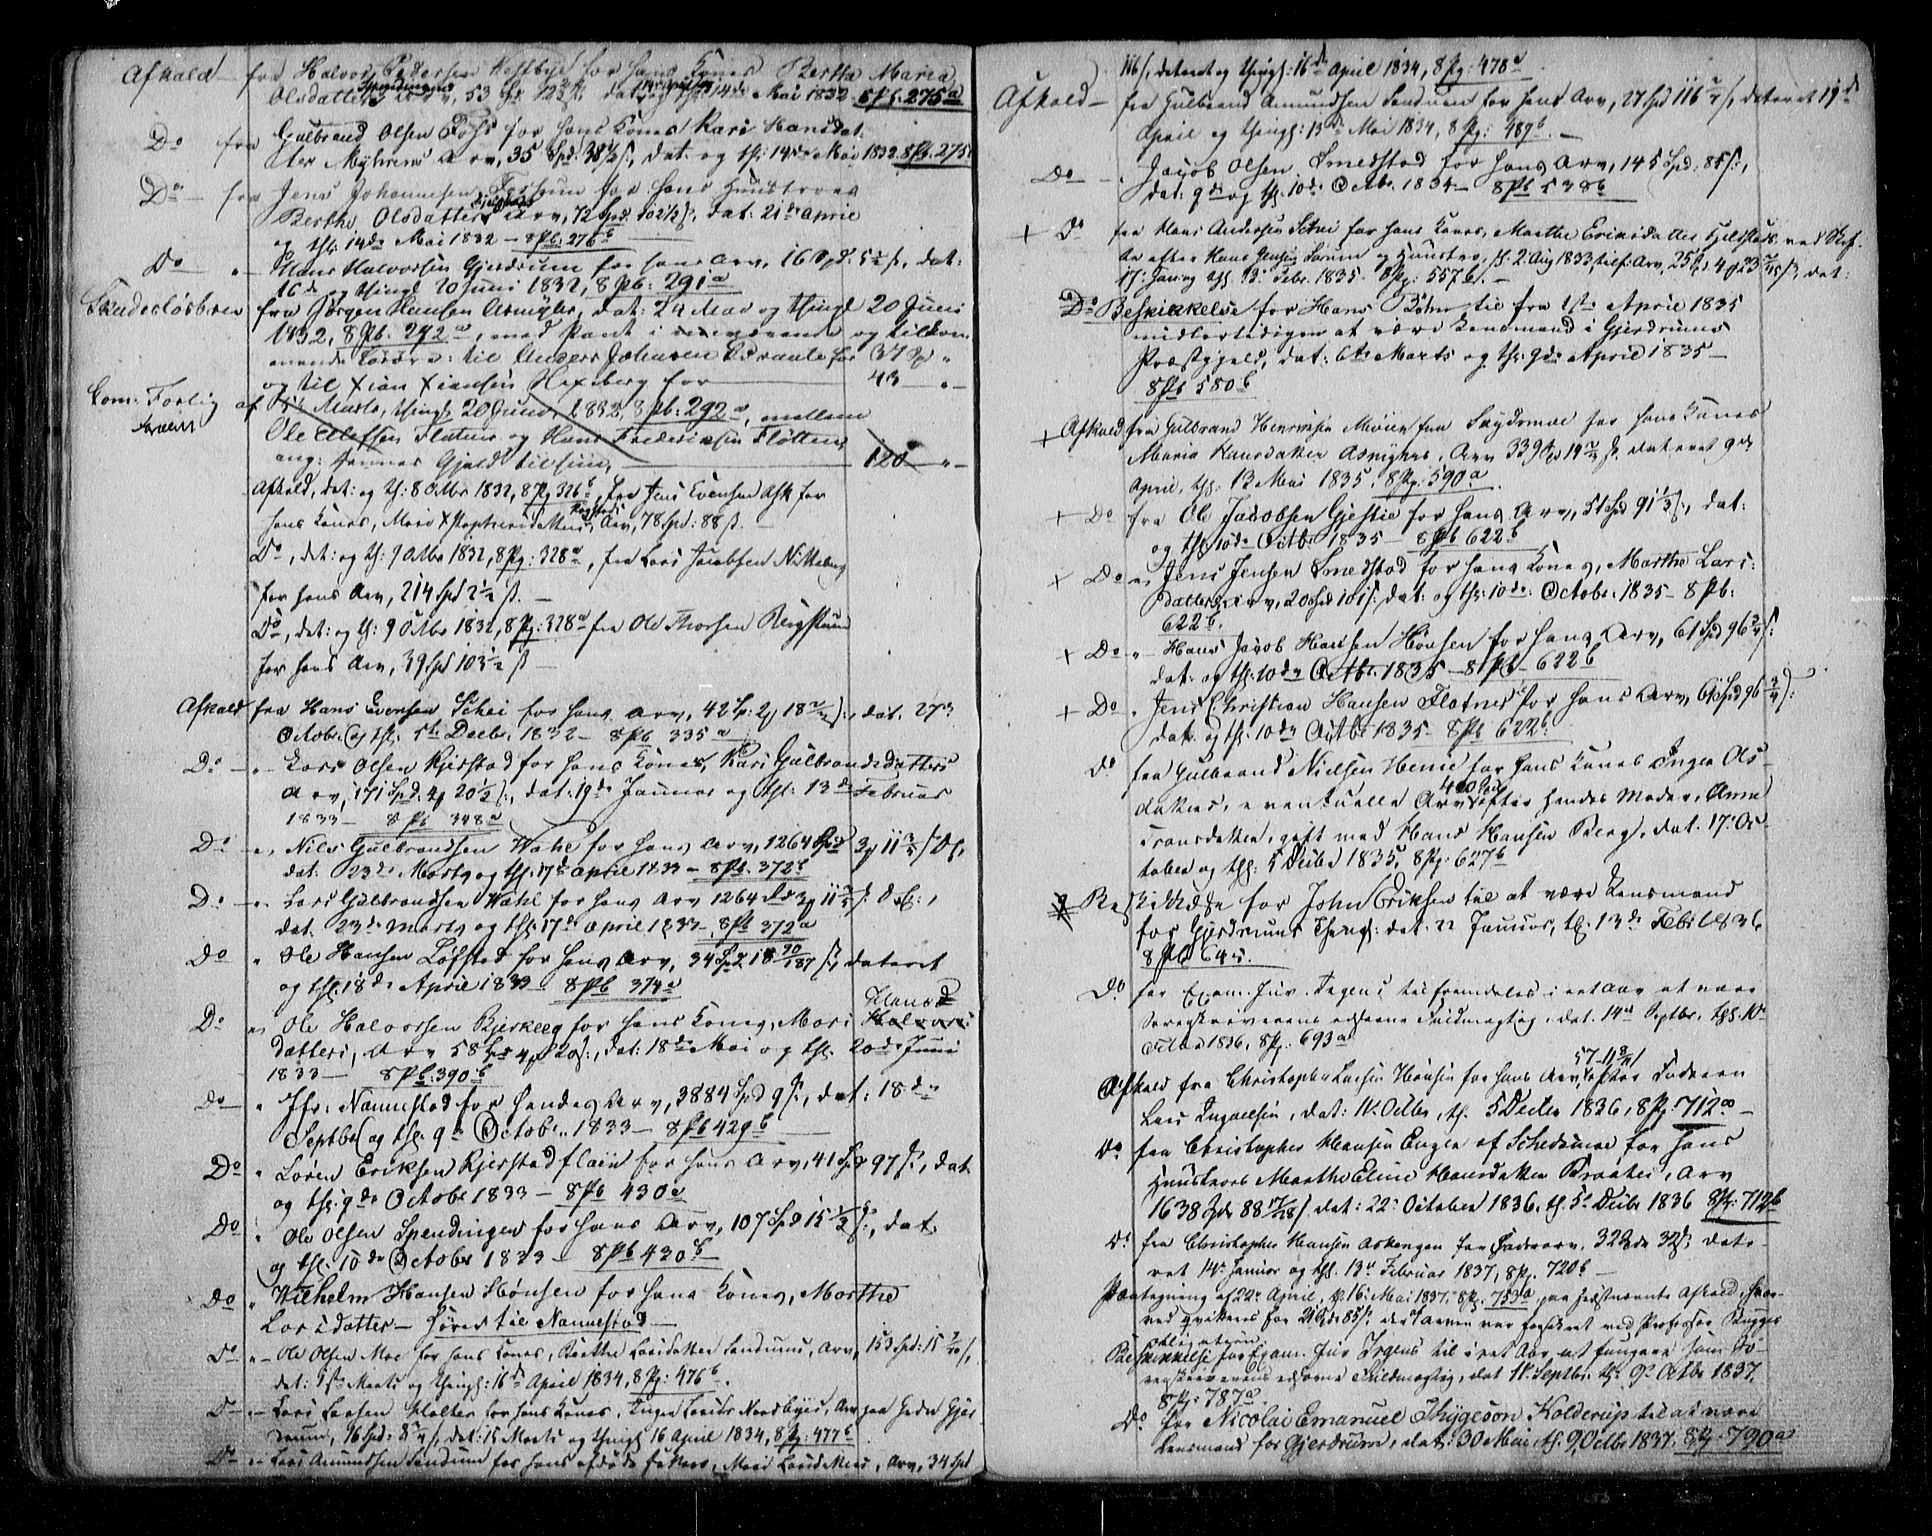 Afkald fra Halvor Pedersen Westbye for hans Kones Bertha Maria
Olsdatters Arv, 53 Spd, dat. og thl. 14de Mai 1832 8Pb. 275a
Do fra Gulbrand Olsen Fohs for hans Kones Kari Hansdat-
ter Myhrens Arv, 35 Spd: 38½ s:, dat: og thl: 14de Mai 1832. 8Pb. 275
Do fra Jens Johannesen Fossum for hans Huustroes
Berthe Olsdatters Arv, 72 Spd 102½ s., dat: 21de April
og thl. 14de Mai 1832 – 8Pb: 276b
Do " Hans Halvorsen Gjerdrum for hans Arv, 16 Spd: 5½ s, dat:
16de og thingl 20 Juni 1832, 8Pb: 291a
Skadesløsbrev fra Jørgen Hansen Asmyhr, dat: 24 Mai og thingl 20 Juni
1832, 8Pb: 292a, med Pant i nuværende og tilkom-
mende Løsøre: til Anders Johansen Braate for 37 Sp "
og til Xian Xiansen Hexeberg for 43 "
Com: Forlig af 5te Marts, thingl 20 Juni, 1832, 8Pb: 292a, mellem
Ole Olessen Flatner og Hans Fredriksen Fløtten,
ang: Gjeld til 120 "
Afkald, dat: og th: 8 Octbr 1832, 8Pg 326b, fra Jens Evensen Ask for
hans Kones, Mari Xstophersdatters, Arv, 78 Spd: 88 s. –
Do, dat: og th: 9 Octbr 1832, 8Pg: 328a, fra Lars Jacobsen Nitteberg
for hans Arv, 214 Spd 2½ s. –
Do, dat: og th: 9 Octbr 1832, 8Pg: 328a fra Ole Thorsen Bergstuen
for hans Arv, 39 Spd 103½ s –
Afkald fra Hans Evensen Schei for hans Arv, 42 Sp: 2 18 s:, dat. 27de
Octobr og thl. 5te Decbr. 1832 – 8Pb 335a
Do " Lars Olsen Kjerstad for hans Kones, Kari Gulbrandsdatters
Arv, 171 Spd. 4 20½ s:, dat: 19de Januar og thl: 13de Februar
1833 – 8Pb 348a
Do " Nils Gulbrandsen Wahl for hans Arv, 1264 Spd 3 11 s
dat: 23de Marts og thl. 17de April 1833 – 8Pb. 372b
Do " Lars Gulbrandsen Wahl for hans Arv 1264 Spd 3 11 s:
dat. 23de Marts og thl: 17de April 1833 – 8Pb 372a
Do " Ole Hansen Løfstad for hans Arv, 34 Spd 18 30/187 s, dateret
og thl. 18de April 1833 – 8Pb 374a
Do " Ole Halvorsen Bjerkeeg for hans Kones, Mari Hans
datters, Arv 58 Spd 4 20 s:, dat: 18de Mai og thl. 20de Juni
1833 – 8Pb: 390b
Do " Jfr: Nannestad for hendes Arv, 3884 Spd 9 s:, dat: 18de
Septbr og thl. 9de Octobr. 1833 – 8Pb 429b
Do " Søren Eriksen Kjerstadflaen for hans Arv, 41 Spd 97 s:, dat.
og thl: 9de Octobr 1833 – 8Pb 430a
Do " Ole Olsen Spendingen for hans Arv, 107 Spd 15⅓ s:, dat.
og thl. 10de October 1833 – 8Pb 430b
Do " Wilhelm Hansen Hønsen for hans Kones, Marthe
Larsdatter – hører til Nannestad –
Do " Ole Olsen Moe for hans Kones, Berthe Larsdatter Sandums, Arv, 153 Spd: 15 s,
dat: 1ste Marts og thingl: 16de April 1834, 8Pg: 476b.
Do " Lars Larsen Holter for hans Kones, Inger Larsd. Nordbyes, Arv paa Gdn Gjer-
drum, 16 Spd: s. dat: 15 Marts og thingl 16 April 1834, 8Pg: 477b
Do " Lars Amundsen Sandum for hans afdøde Fasters, Mari Larsdatters, Arv, 34 Spd
116 s, dateret og thingl: 16de April 1834, 8Pg: 478a
Afkald – fra Gulbrand Amundsen Sandum for hans Arv, 27 Spd 116 s, dateret 19de
April og thingl: 13de Mai 1834, 8Pg: 489b. –
Do – " Jacob Olsen Smedstad for hans Arv, 145 Spd. 85 s:,
dat. 9de og thl. 10de Octbr. 1834 – 8Pb 538b
+ Do fra Hans Andersen Schei for hans Kones, Marthe Eriksdatter Kjelstads ved Skif-
te efter Hans Jensen Særum og Huustro, thl. 2 Aug 1833, tilf: Arv, 25 4 23 s, dat:
17: Jan og thl. 12: Febr. 1835 – 8Pg: 557b. –
Do Beskikkelse for Hans Bøhn til fra 1ste April 1835
midlertidigen at være Lensmand i Gjerdrums
Præstegjeld, dat: 6te Marts og thl. 9de April 1835 –
8Pb 580b
+ Afkald fra Gulbrand Henriksen Moien fra Sugdsmoe for hans Kones
Maria Hansdatter Asmyhrs, Arv 339 19 s. dateret 9de
April, thl. 13 Mai 1835, 8Pg: 590a.
+ Do fra Ole Jacobsen Gjestie for hans Arv, 51 Spd 91⅓ s:, dat:
og thl. 10de Octbr 1835 – 8Pb 622b
+ Do " Jens Jensen Smedstad for hans Kones, Marthe Lars:
Datters Arv, 20 Spd 101 s: dat: og thl: 10de October 1835 – 8Pb:
622b.
+ Do " Hans Jacob Hansen Hønsen for hans Arv, 61 Spd 96¾ s:
dat: og thl: 10de Octbr: 1835 – 8Pb – 622b
+ Do " Jens Christian Hansen Flatner for hans Arv, 61 Spd 96¾ s:
dat. og thl: 10de Octbr 1835 – 8Pb 622b
Do fra Gulbrand Nielsen Heni for hans Kones Inger Ols-
datters, eventuelle Arv 400 Spd efter hendes Moder, Anne
Iversdatter, gift med Hans Hansen Berg, dat. 17 Oc-
tober og thl: 5 Decbr 1835, 8Pg: 627b
Beskikkelse for John Eriksen til at være Lensmand
for Gjerdrums Thingl: dat: 22 Januar, thl. 13de Febr. 1836
8Pb 645.
Do for Exam. Jur. Irgens til fremdeles i eet Aar at være
Sorenskriverens edsvorne Fuldmægtig, dat. 14de Septbr. thl. 10de
Octbr 1836, 8Pg: 693a
Afkald fra Christopher Larsen Hønsen for hans Arv efter Faderen
Lars Ingvalsen, dat: 11 Octbr, thl. 5 Decbr 1836, 8Pg: 712a –
Do fra Christopher Hansen Enger af Schedsmoe for hans
Huustroes Marthe Eline Hansdatter Braates, Arv
1638 Spd 88 s. dat: 22de October 1836, thl. 5te Decbr 1836 8Pg: 712b
Do fra Christopher Hansen Askengen for Fædrearv, 32 Spd 32 s; date-
ret 14de Januar og thl. 13de Februar 1837, 8Pg. 720b –
Paategning af 22de April, thl. 16 Mai 1837, 8Pg. 753a, paa sidstnævnte Afkald, hvor-
ved qvitteres for 216 Spd 85 s. der af Arven var forsikret ved Professor Rugges
Obligation.
Beskikkelse for Exam. Jur Irgens til i eet Aar at fungere som So-
renskriverens edsvorne Fuldmægtig, dat 11 Septbr. thl. 9de Octbr 1837.
8Pg. 787a
Do for Nicolai Emanuel Thygeson Kolderup til at være
Lensmand for Gjerdrum, dat: 30 Mai, th. 9 Octbr 1837. 8Pg. 790a